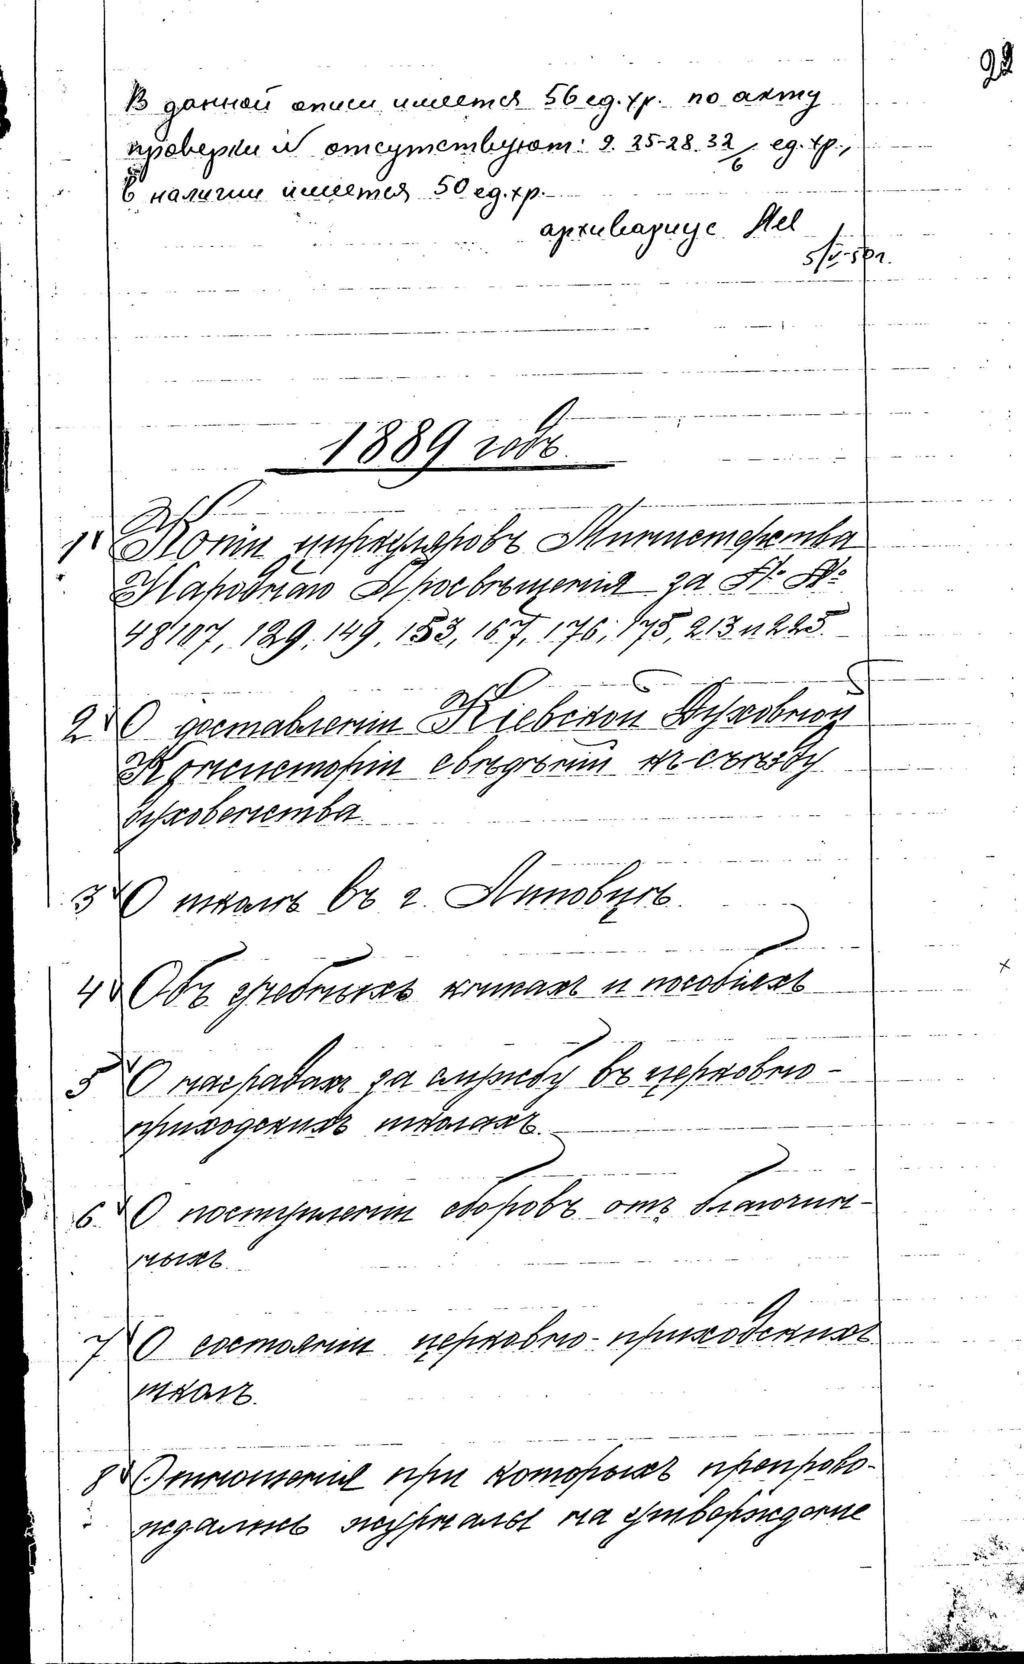 22
В данной описи имеется 56 ед. хр. по акту
проверки № отсутствуют: 9. 25-28. 32 /6 ед. хр.,
в наличии имеется 50 ед. хр.
архивариус
5/V-50 г.
1889 годъ.
1 Копіи циркуляровъ Министерства
Народнаго Просвѣщенія за №№
48107, 129, 149, 153, 167, 176, 175, 213 и 225.
2 О доставленіи Кіевской Духовной
Консисторіи свѣдѣній къ съѣзду
духовенства
3 О школѣ въ г. Липовцѣ
4 Объ учебныхъ книгахъ и пособіяхъ
5 О наградах за службу въ церковно-
приходскихъ школахъ.
6 О поступленіи сборовъ отъ благочин-
ныхъ.
7 О состояніи церковно-приходскихъ
школъ.
8 Отношенія при которыхъ препрово-
ждались журналы на утвержденіе